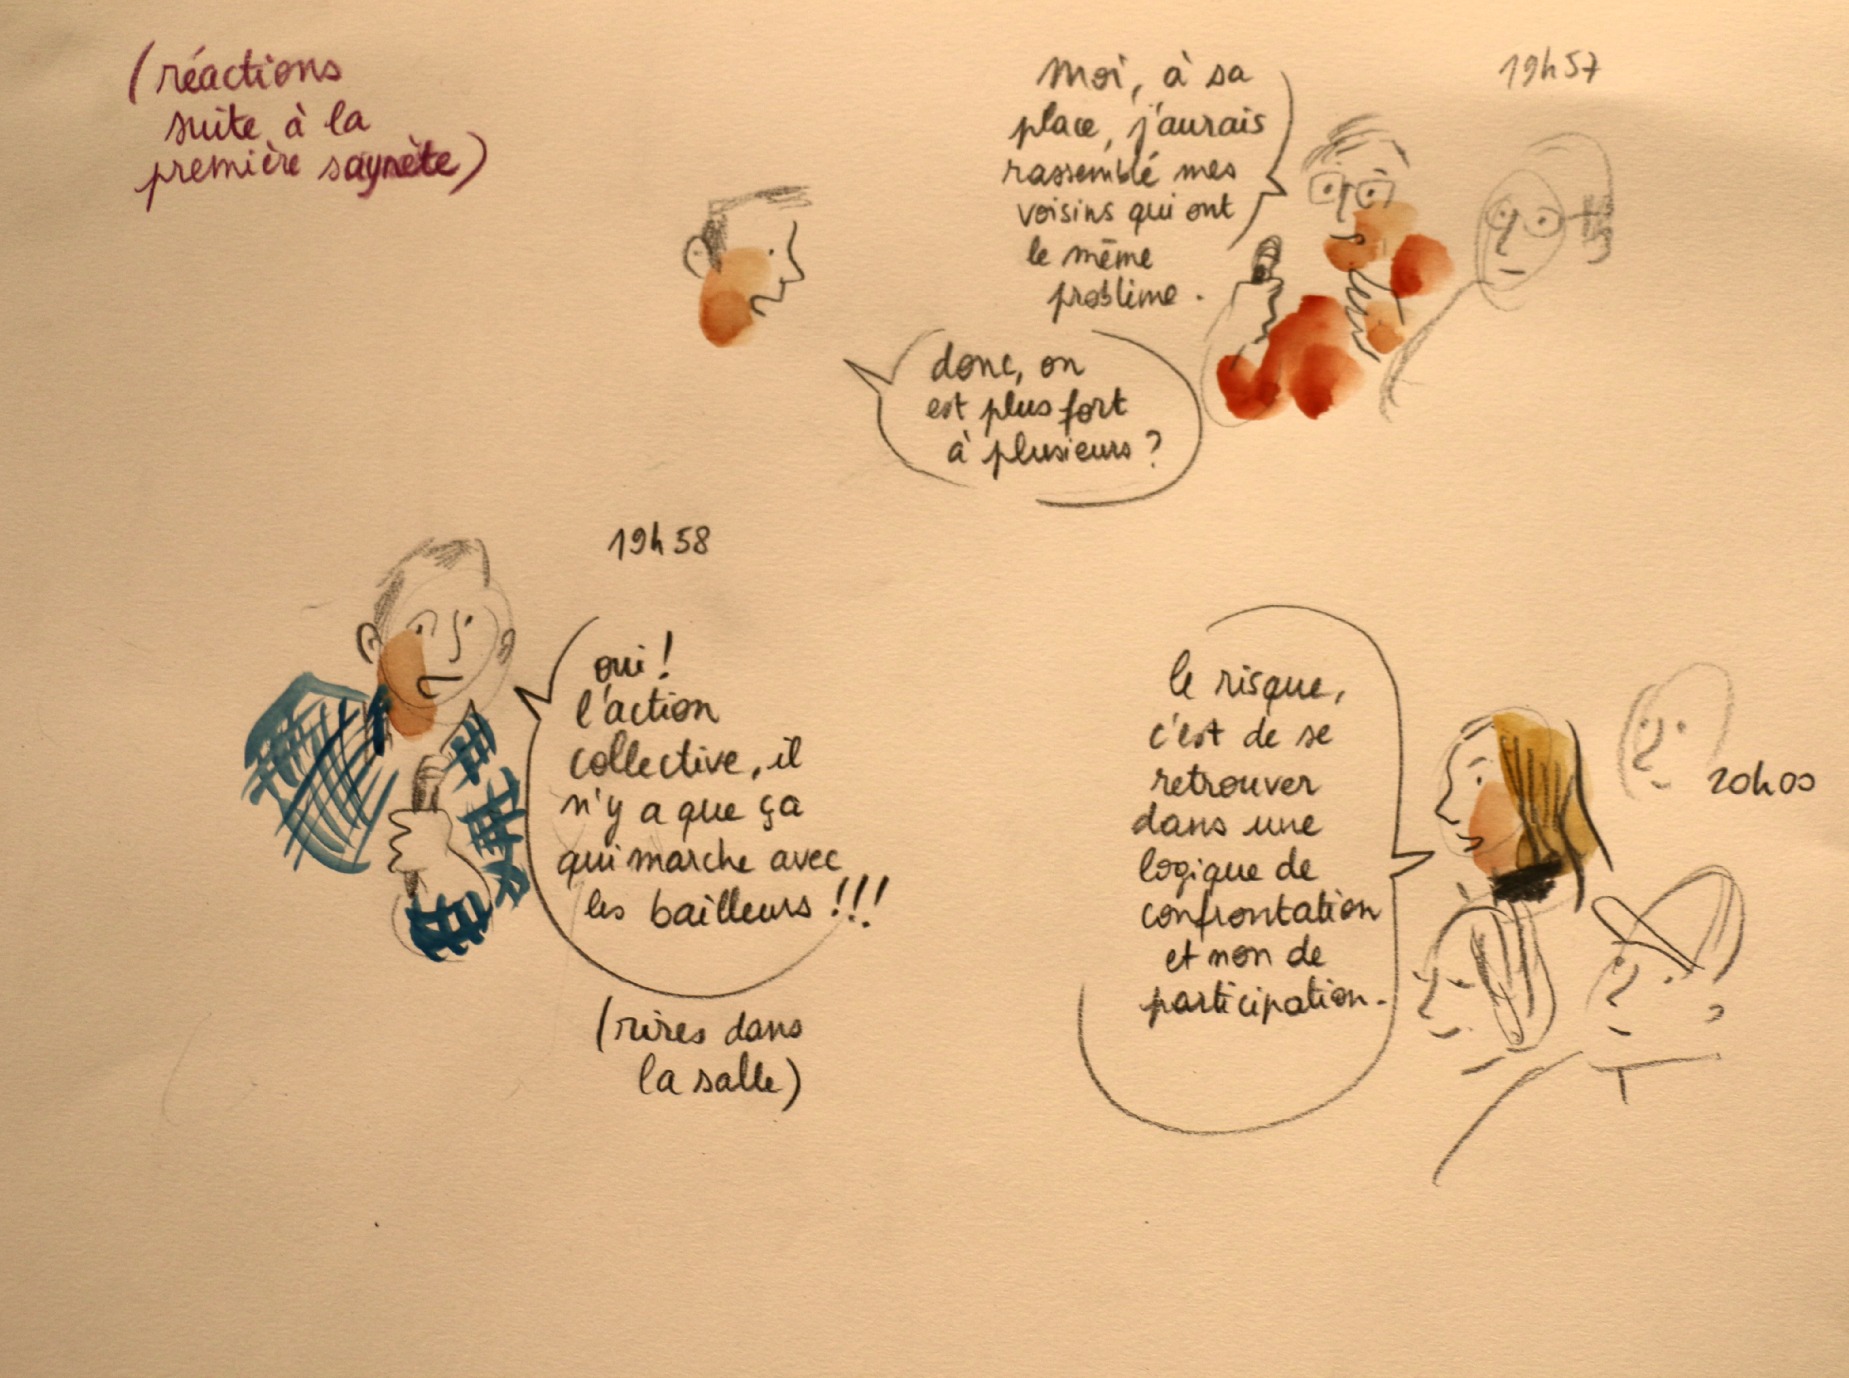 (réactions
suite à la
première saynète)
19h57
Moi, à sa
place, j'aurais
rassemblé mes
voisins qui ont
le même
problème.
donc, on
est plus fort
à plusieurs ?
19h58
oui !
l'action
collective, il
n'y a que ça
qui marche avec
les bailleurs !!!
(rires dans
la salle)
20h00
le risque,
c'est de se
retrouver
dans une
logique de
confrontation
et non de
participation.